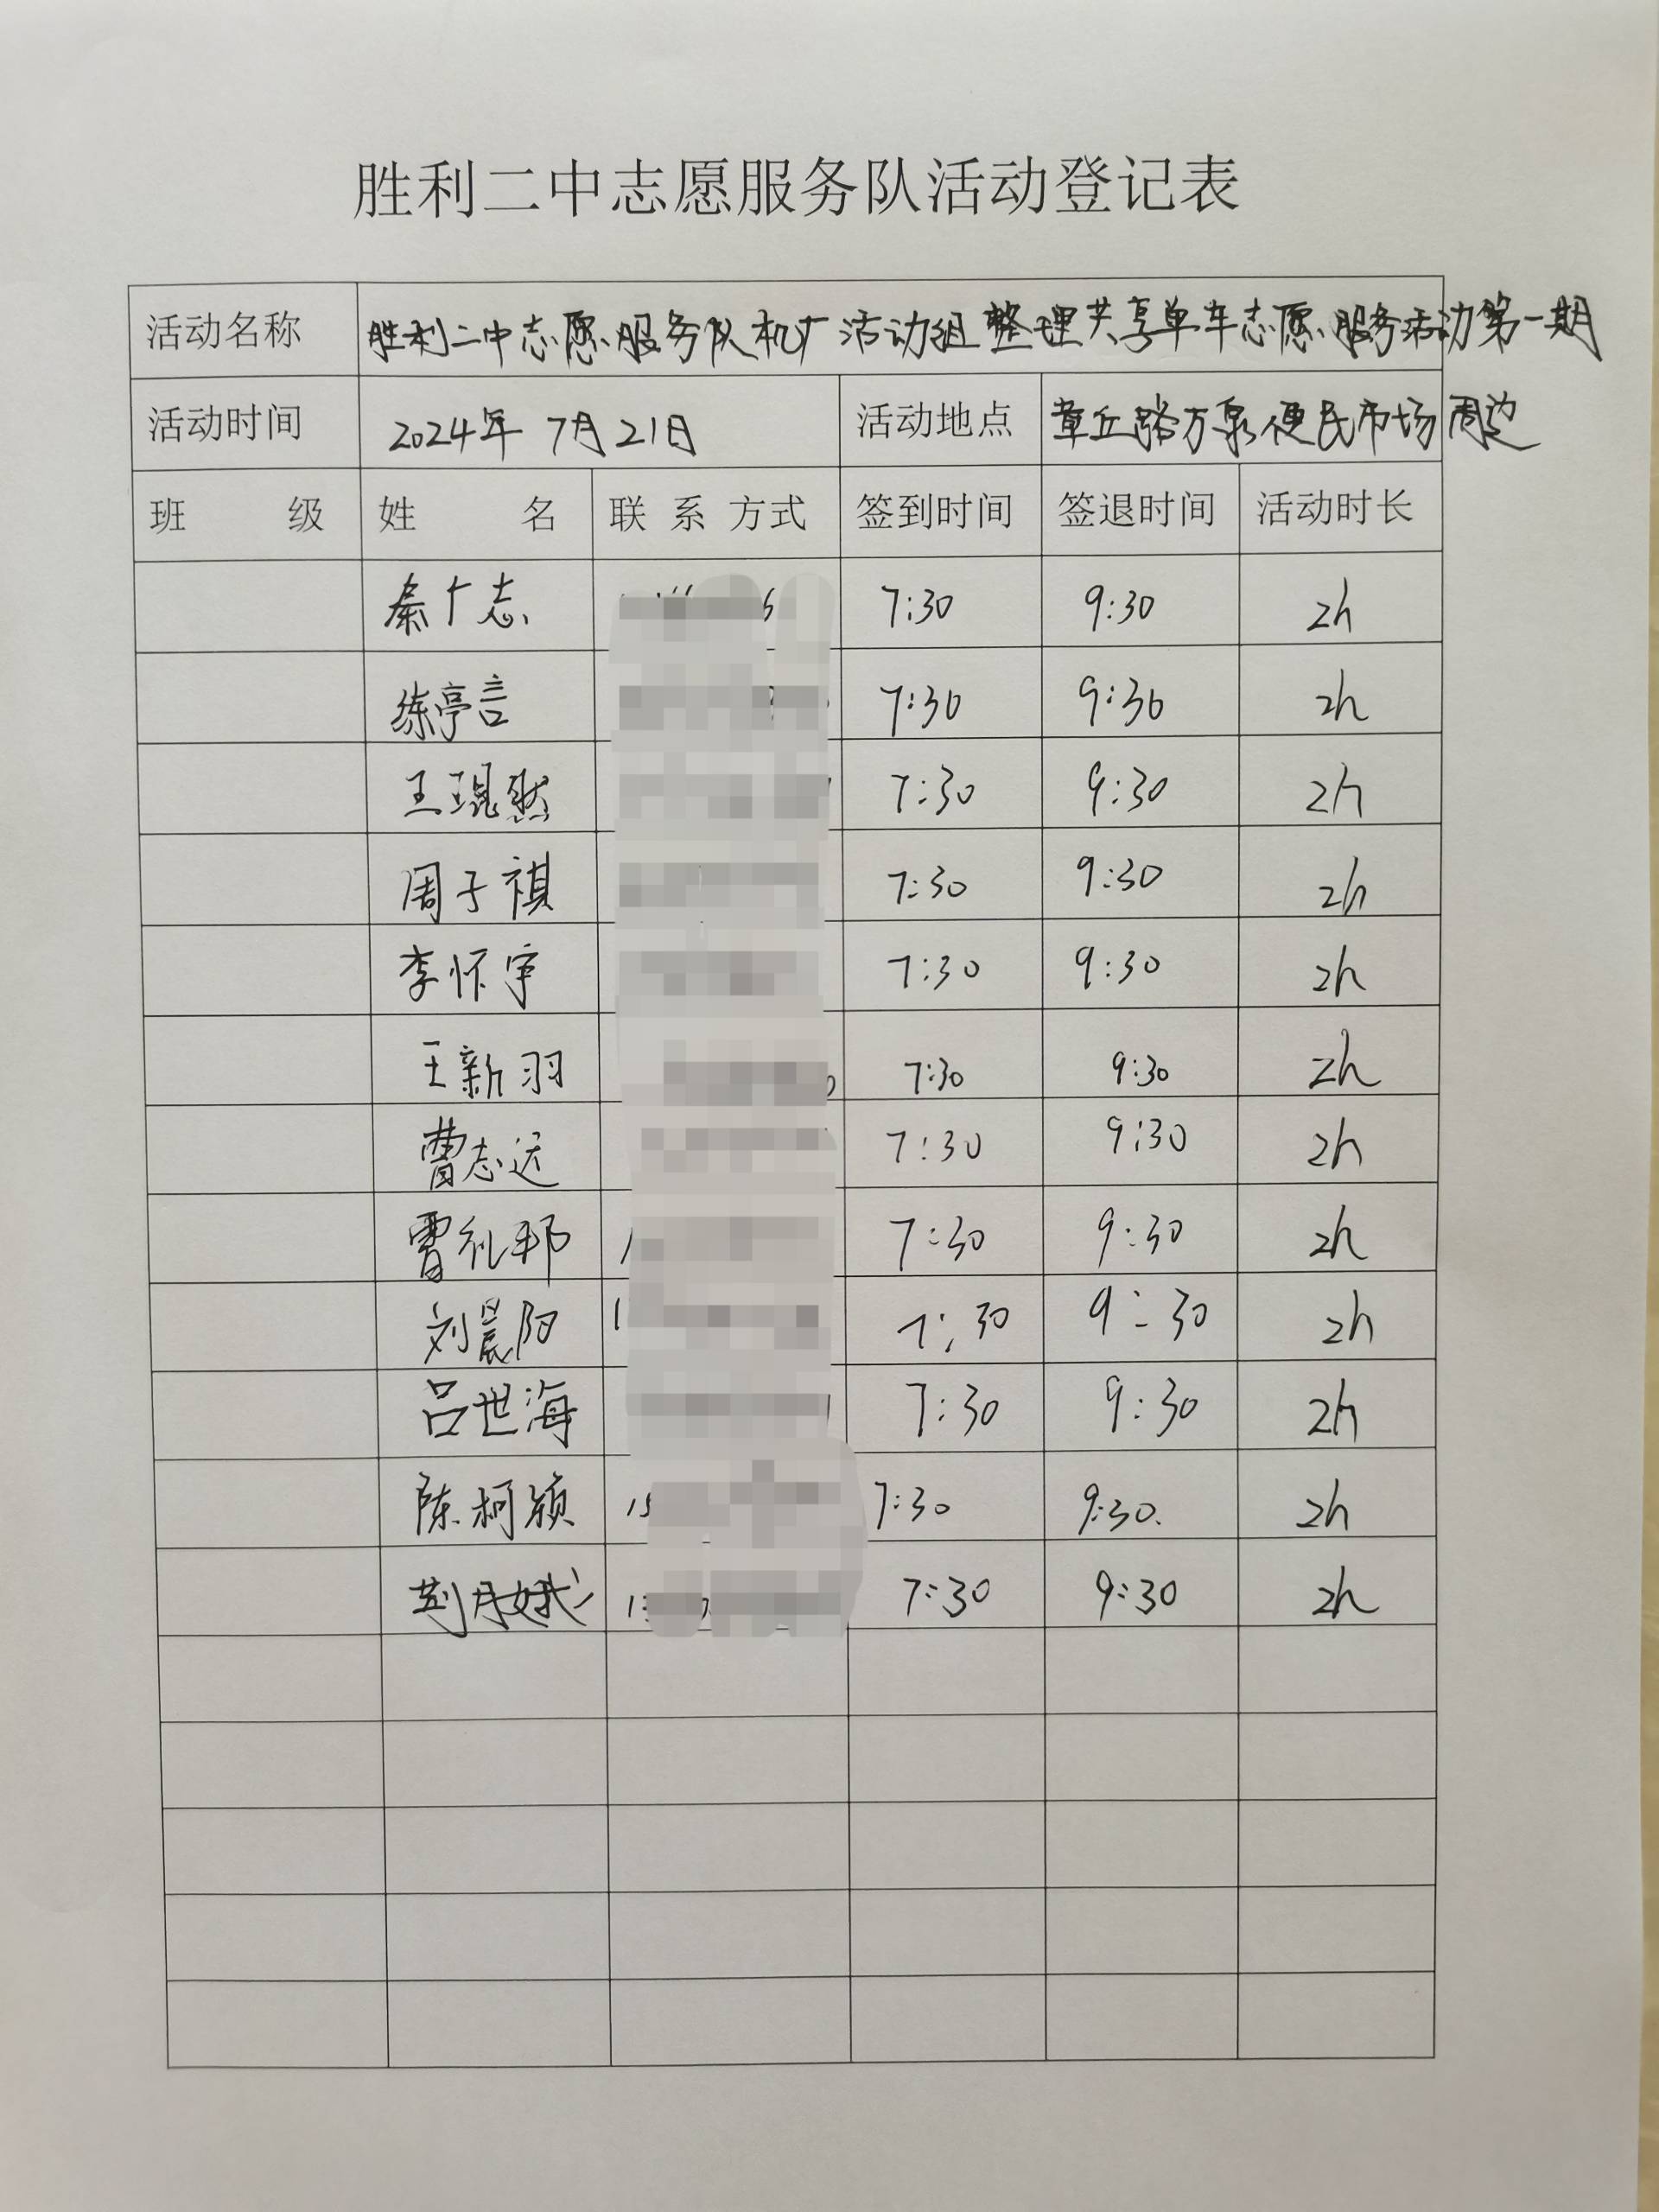 胜利二中志愿服务队活动登记表
活动名称 胜利二中志愿服务队机厂活动组整理共享单车志愿服务活动第一期
活动时间 2024年 7月21日 活动地点 章丘路万泉便民市场周边
班 级 姓 名 联 系 方式 签到时间 签退时间 活动时长
秦广志 7:30 9:30 2h
练亭言 7:30 9:30 2h
王琨然 7:30 9:30 2h
周子祺 7:30 9:30 2h
李怀宇 7:30 9:30 2h
王新羽 7:30 9:30 2h
曹志远 7:30 9:30 2h
曹礼邦 7:30 9:30 2h
刘晨阳 7:30 9:30 2h
吕世海 7:30 9:30 2h
陈柯颍 7:30 9:30 2h
荆月娥 7:30 9:30 2h